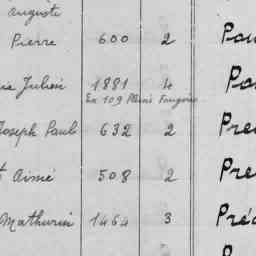 auguste
Pierre 600 2 Pou
ie Julien 1881 4 Po
Ex 109 Pleine Fougères
Joseph Paul 632 2 Pre
t Aimé 508 2 Pre
Mathurin 1464 3 Pré